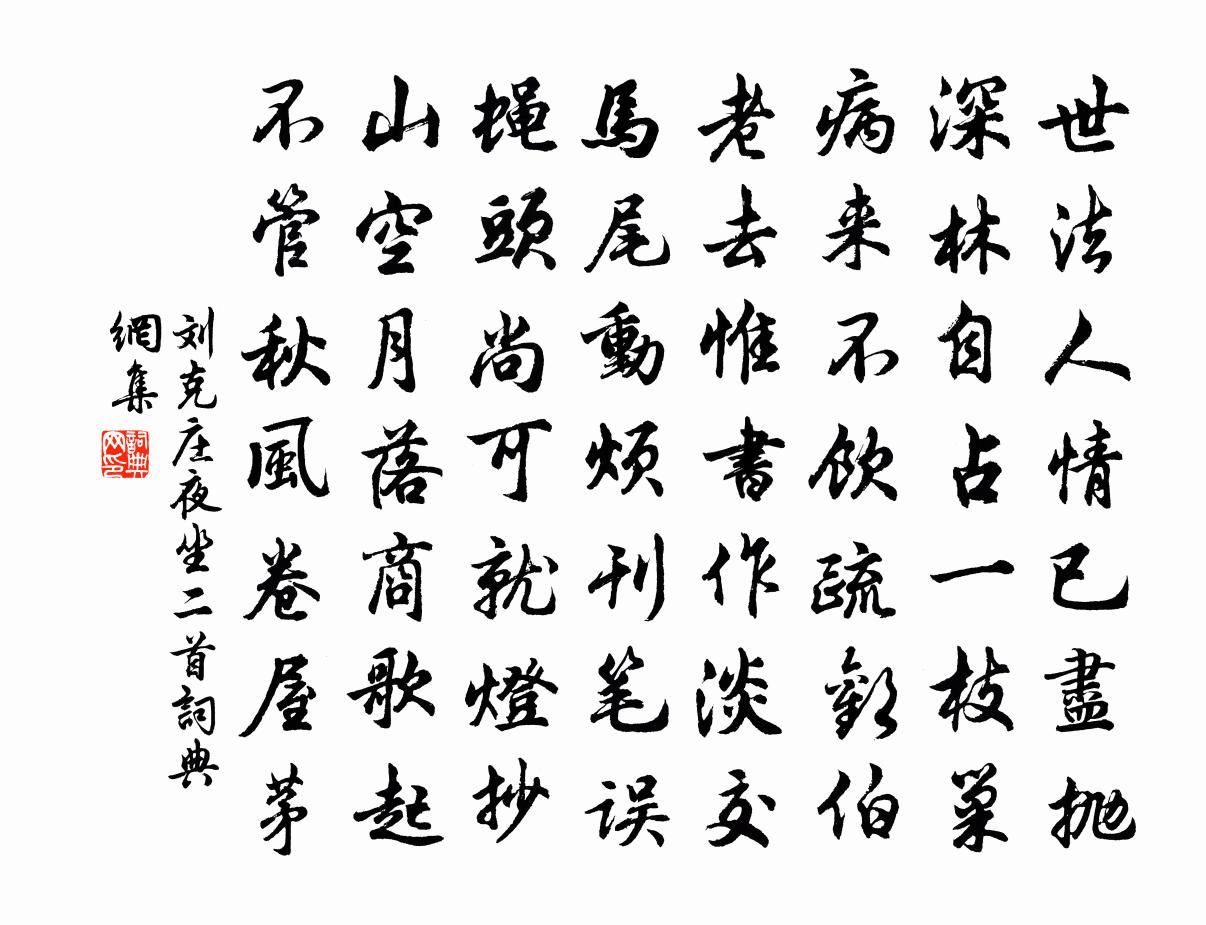 世法人情已盡抛
深林自占一枝巢
病来不飲疏歡伯
老去惟書作淡交
馬尾動煩刊笔误
蝇頭尚可就燈抄
山空月落商歌起
不管秋風卷屋茅
刘克庄夜坐二首詞典
網集
詞典
网印